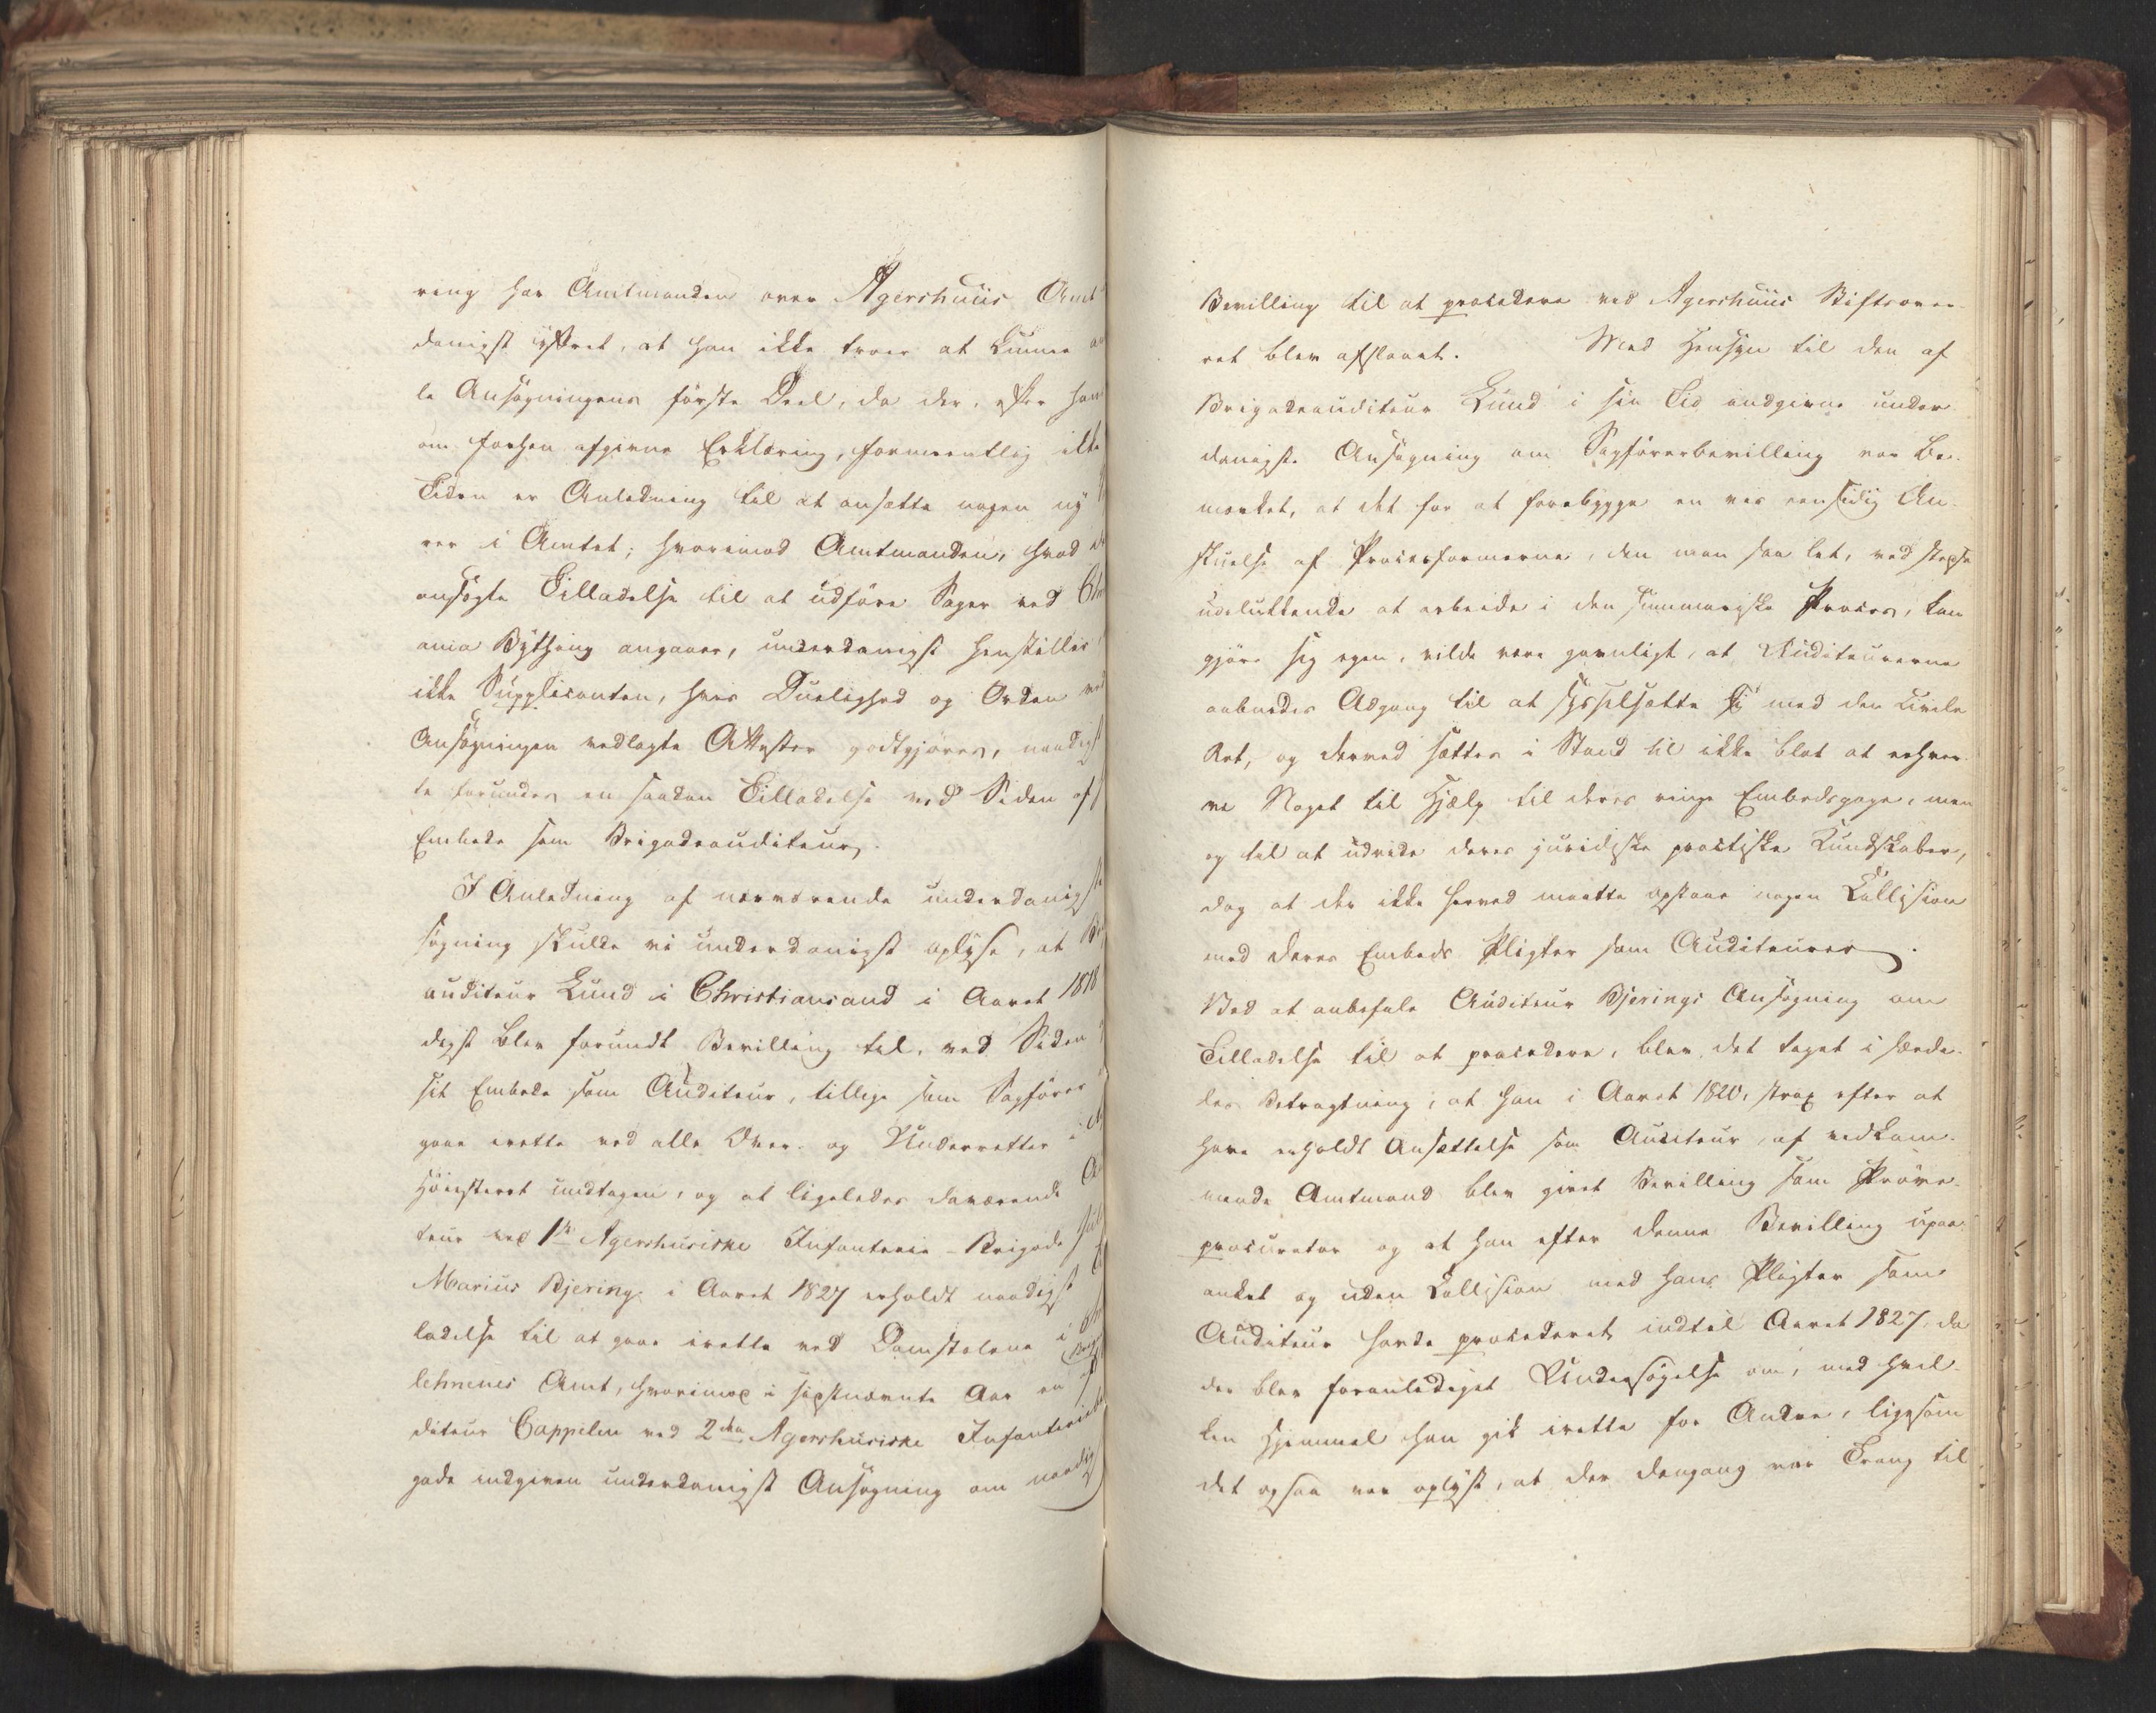 ring har Amtmanden over Agershuus Amt
danigst yttret, at han ikke troer at kunne
le Ansøgningens første Deel, da der, efter hans
om forhen afgivne Erklæring, formeentlig ikke
Tiden er Anledning til at ansætte nogen ny
rer i Amtet; hvorimod Amtmanden, hvad
ansøgte Tilladelse til at udføre Sager ved Chri
ania Bything angaaer, underdanigst henstiller
ikke Supplicanten, hvis Duelighed og Orden ved
Ansøgningen vedlagte Attester godtgjøres, naadigst
te forundes en saadan Tilladelse ved Siden af
Embede som Brigadeauditeur.
I Anledning af nærværende underdanigste
søgning skulle vi underdanigst oplyse, at Br
auditeur Lund i Christiansand i Aaret 1818
digst blev forundt Bevilling til, ved Siden
sit Embede som Auditeur, tillige som Sagfører
gaae irette ved alle Over- og Underretter i
Høiesteret undtagen, og at ligeledes daværende Au
teur ved 1ste Agershusiske Infanterie-Brigade
Marius Bjering i Aaret 1827 erholdt naadigst
ladelse til at gaae irette ved Domstolene i
lehnenes Amt, hvorimod i sidstnævnte Aar en af
diteur Cappelen ved 2den Agershusiske Infanteriebri
gade indgiven underdanigst Ansøgning om naadig
Bevilling til at procedere ved Agershuus Stiftsover-
ret blev afslaaet. Med Hensyn til den af
Brigadeauditeur Lund i sin Tid indgivne under
danigste Ansøgning om Sagførerbevilling var be-
mærket, at det for at forebygge en vis eensidig An-
skuelse af Procesformerne, den man saa let, ved stedse
udeluttende at arbeide i den summariske Proces, kan
gjøre sig egen, vilde være gavnligt, at Auditeurerne
aabnedes Adgang til at sysselsætte sig med den civile
Ret, og derved sættes i Stand til ikke blot at erhver-
ve Noget til Hjælp til deres ringe Embedsgage, men
og til at udvide deres juridiske practiske Kundskaber,
dog at der ikke herved maatte opstaae nogen Collision
med deres Embeds Pligter som Auditeurer.
Ved at anbefale Auditeur Bjerings Ansøgning om
Tilladelse til at procedere, blev det taget i særde-
les Betragtning, at han i Aaret 1820, strax efter at
have erholdt Ansættelse som Auditeur, af vedkom-
mende Amtmand blev givet Bevilling som Prøve-
procurator og at han efter denne Bevilling upaa-
anket og uden Collision med hans Pligter som
Auditeur havde procederet indtil Aaret 1827, da
der blev foranlediget Undersøgelse om, med hvil-
ken Hjemmel han gik irette for Andre, ligesom
det ogsaa var oplyst, at der dengang var Trang til